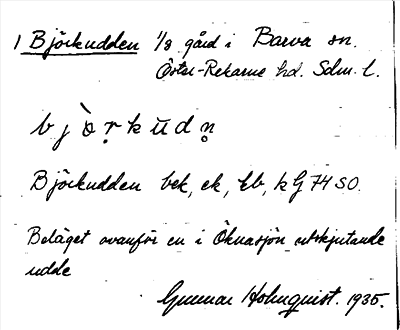 1 Björkudden 1/8 gård i Barva sn.
Öster-Rekarne hd. Sdm. l.
b j ö̀ ṛ k ŭ d n̥
Björkudden bek, ek, Eb, k G 74 SO.
Beläget ovanför en i Öknasjön utskjutande
udde
Gunnar Holmquist. 1935.